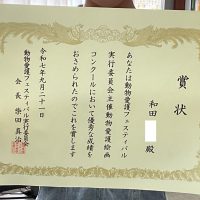 賞状
和田 殿
あなたは動物愛護フェスティバル
実行委員会主催動物愛護絵画
コンクールにおいて優秀な成績を
おさめられたのでこれを賞します
令和七年九月二十一日
動物愛護フェスティバル実行委員会
会長 柴田真治